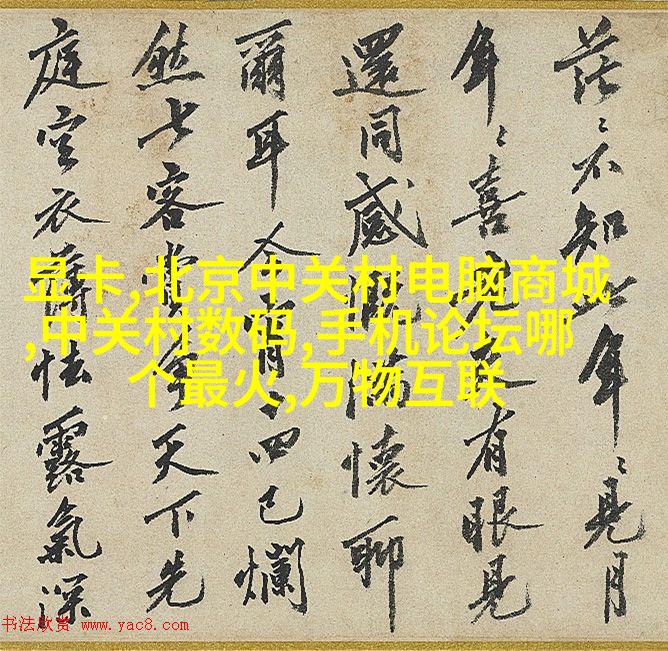 茫〻不知此年〻見月
年〻喜有眼見
還同感慨懷聊
爾耳今宵四已爛
然七客天下先
庭空衣薄怯露氣深
显卡,北京中关村电脑商城
,中关村数码,手机论坛哪
个最火,万物互联
书法欣赏 www.yac8.com